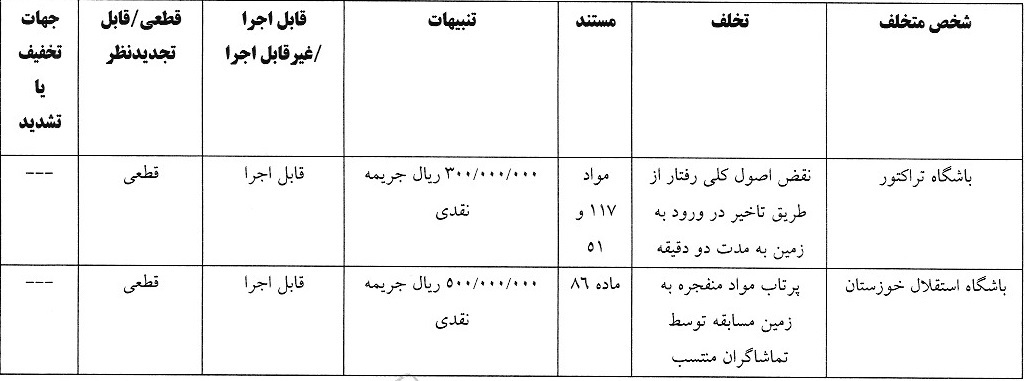 شخص متخلف
تخلف
مستند
تنبیهات
قابل اجرا
/غیرقابل اجرا
قطعی/قابل
تجدیدنظر
جهات
تخفیف
یا
تشدید
باشگاه تراکتور
نقض اصول کلی رفتار از
طریق تاخیر در ورود به
زمین به مدت دو دقیقه
مواد
۱۱۷ و
۵۱
۳۰۰/۰۰۰/۰۰۰ ریال جریمه
نقدی
قابل اجرا
قطعی
---
باشگاه استقلال خوزستان
پرتاب مواد منفجره به
زمین مسابقه توسط
تماشاگران منتسب
ماده ۸۶
۵۰۰/۰۰۰/۰۰۰ ریال جریمه
نقدی
قابل اجرا
قطعی
---